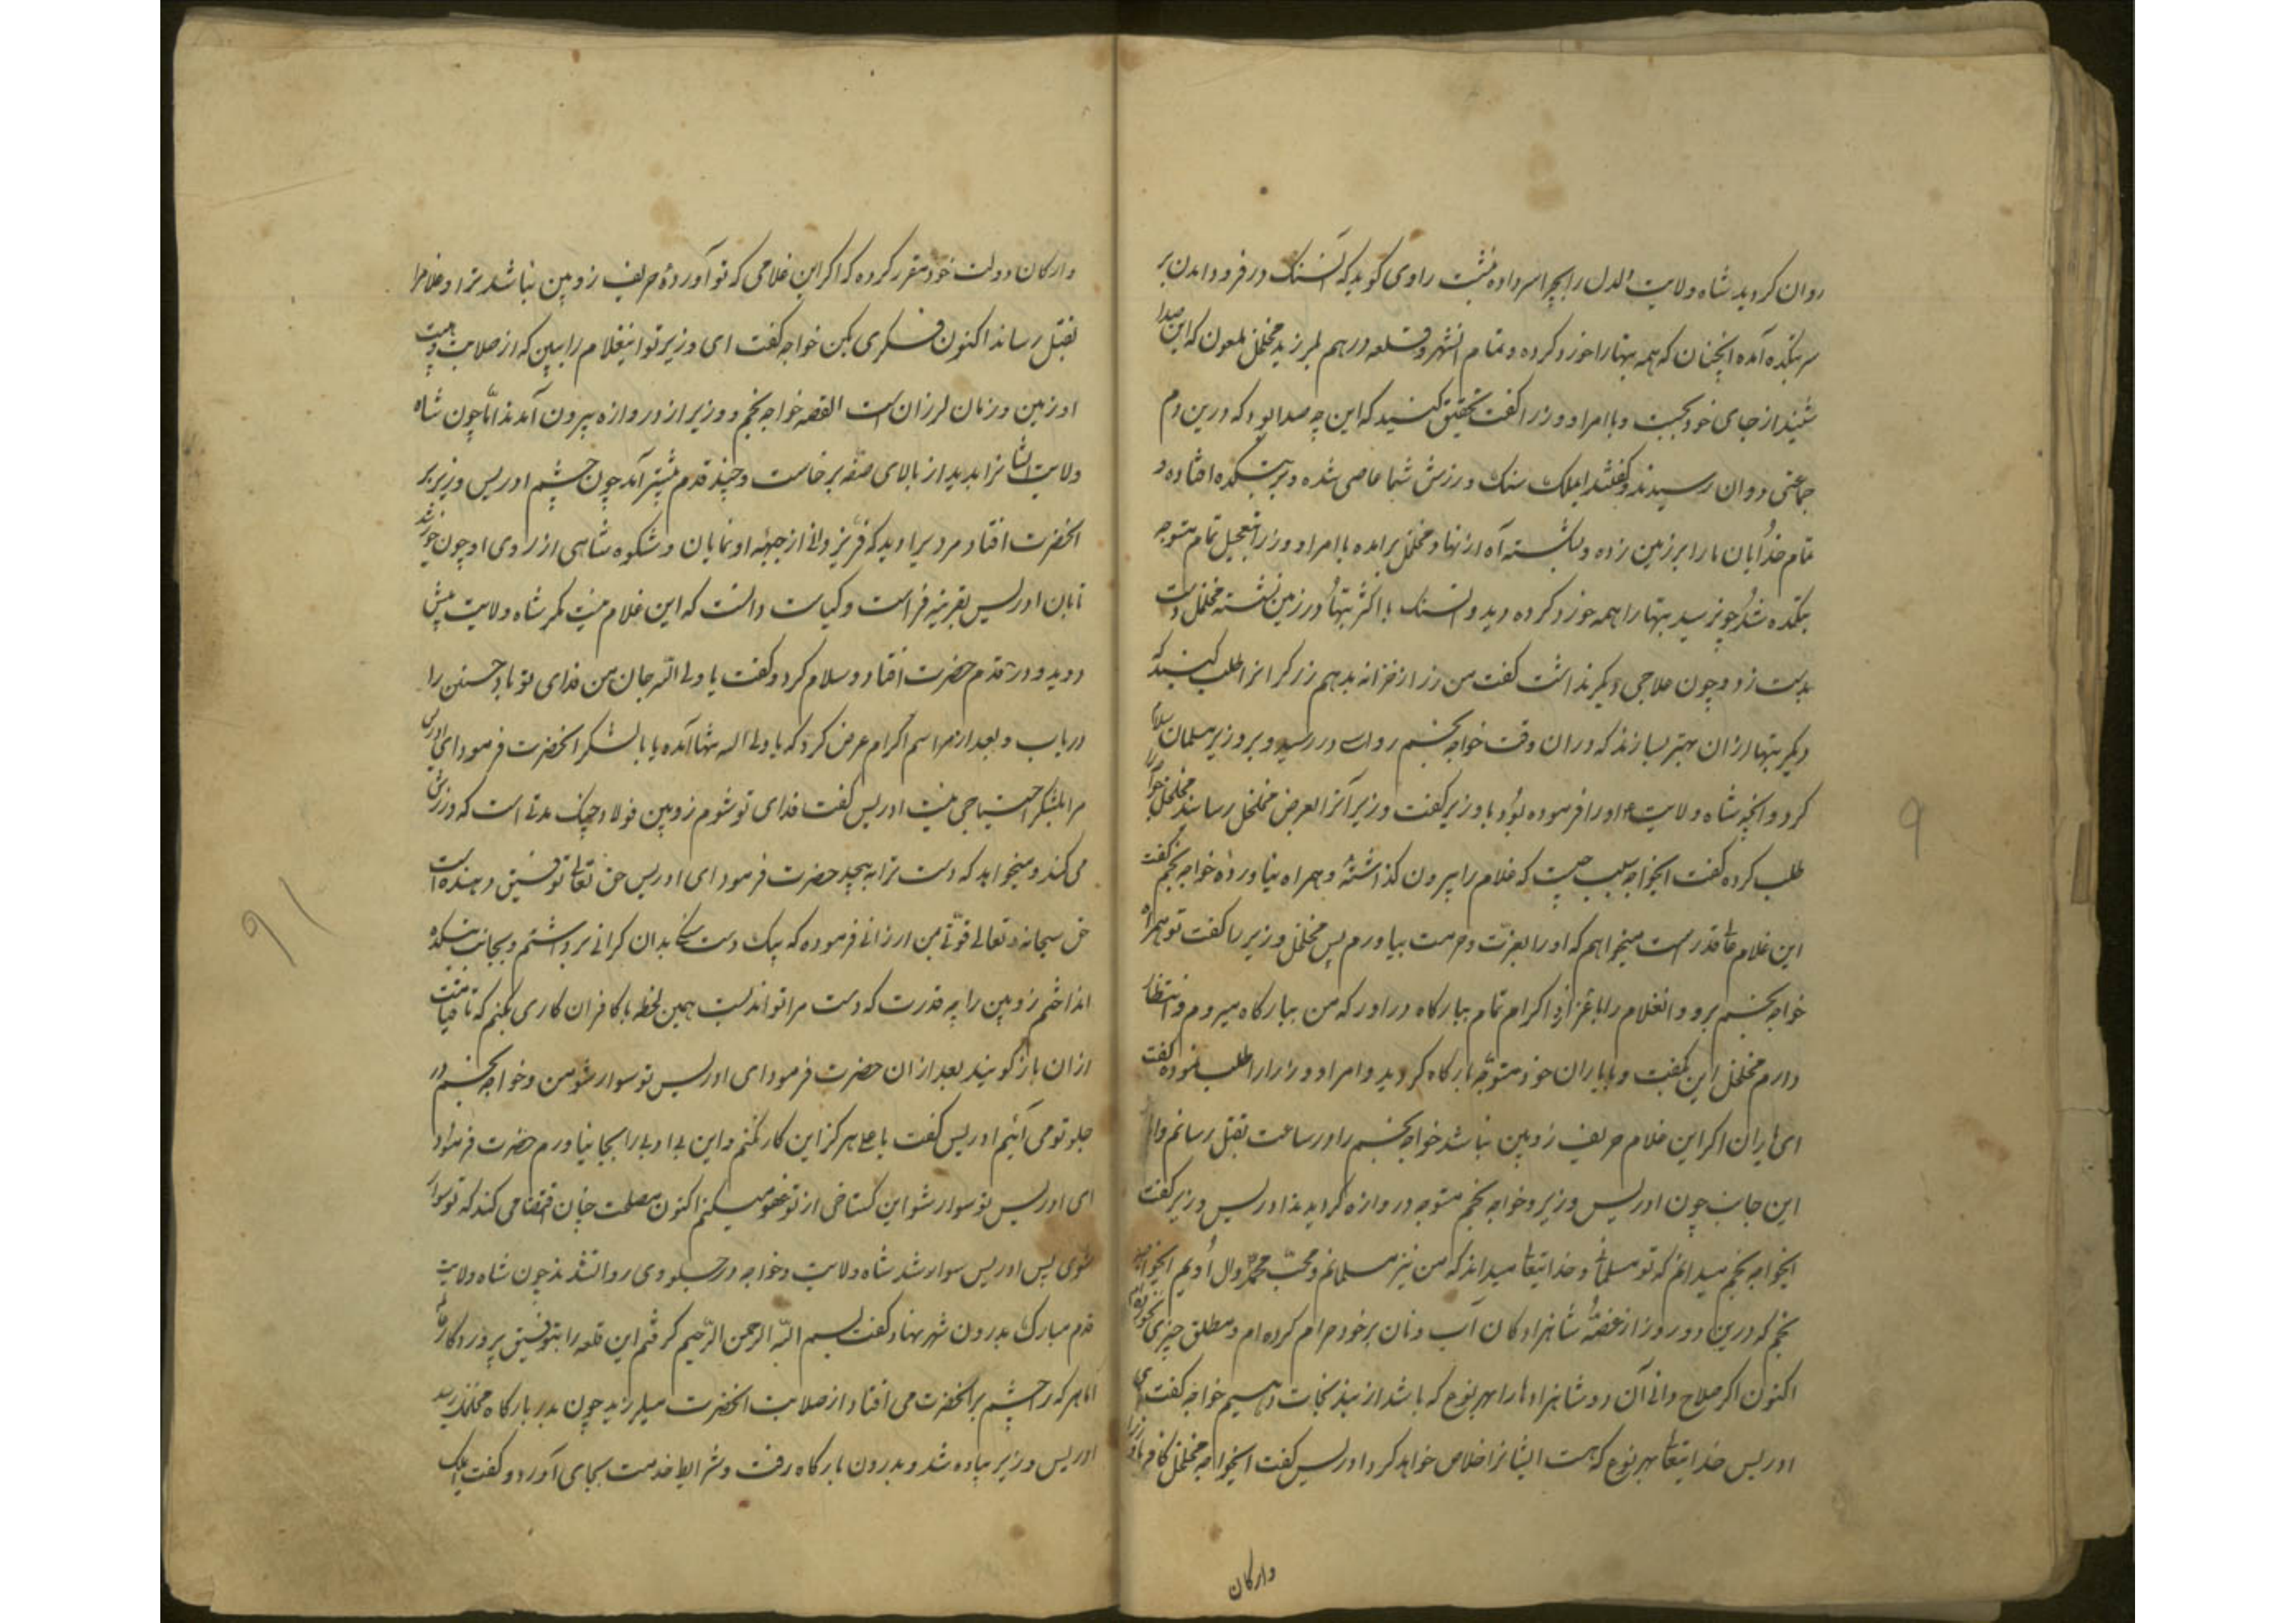 روان کردید شاه ولایت دلدل را بچرا سر داده نشست راوی کوید که آنسنک در فرود امدن بر
سر بتکده آمده انچنان که همه بتها را خورد کرده و تمام انشهر و قلعه در هم لرزید مخلخل ملعون که این صدا
شنید از جای خود بجست و با امرا و وزرا کفت تحقیق کنید که این چه صدا بود که درین دم
جماعتی دوان رسیدند و کفتند ایملک سنک ورزش شما عاصی شده و بر بتکده افتاده و
تمام خدایان ما را بر زمین زده و شکسته آه از نهاد مخلخل برامده با امرا و وزرا بتعجیل تمام متوجه
بتکده شد چون رسید بتها را همه خورد کرده دید و انسنک با اکثر بتها در زمین نشسته مخلخل دست
بدست زد و چون علاجی دیکر نداشت کفت من زر از خزانه بدهم زرکرانرا طلب کنید که
دیکر بتها ازان بهتر بسازند که دران وقت خواجه نجم روان در رسید و بر وزیر مسلمان سلام
کرد و انچه شاه ولایت اورا فرموده بود با وزیر کفت وزیر آنرا بعرض مخلخل رسانید مخلخل خواجه را
طلب کرده کفت ایخواجه سبب چیست که غلام را بیرون کذاشتهٔ و همراه نیاوردهٔ خواجه نجم کفت
این غلام عالیقدر است میخواهم که اورا بعزت و حرمت بیاورم پس مخلخل وزیر را کفت تو همراه
خواجه نجم برو و انغلام را با عزاز و اکرام تمام ببارکاه در اور که من ببارکاه میروم و انتظار
دارم مخلخل این بکفت و با یاران خود متوجه بارکاه کردید و امرا و وزرا را طلب نموده کفت
ای یاران اکر این غلام حریف زوبین نباشد خواجه نجم را در ساعت بقتل رسانم واز
این جانب چون ادریس وزیر و خواجه نجم متوجه دروازه کردیدند ادریس وزیر کفت
ایخواجه نجم میدانم که تو مسلمانی و خدایتعالی میداند که من نیز مسلمانم و محب محمد و ال اویم ایخواجه
نجم که درین دو روز از غصهٔ شاهزادکان آب و نان بر خود حرام کرده ام و مطلق چیزی نخورده ام
اکنون اکر صلاح دانی آن دو شاهزادها را بهر نوع که باشد از بند نجات دهیم خواجه کفت ای
ادریس خدایتعالی بهر نوع که هست ایشانرا خلاص خواهد کرد ادریس کفت ایخواجه مخلخل کافر با وزرا
وارکان
وارکان دولت خود مقرر کرده که اکر این غلامی که تو آوردهٔ حریف زوبین نباشد ترا و غلامرا
بقتل رساند اکنون فکری بکن خواجه کفت ای وزیر تو اینغلام را ببین که از صلابت و هیبت
او زمین و زمان لرزان است القصه خواجه نجم و وزیر از دروازه بیرون آمدند اما چون شاه
ولایت ایشانرا بدید از بالای صفه برخاست و چند قدم پیشتر آمد چون چشم ادریس وزیر بر
انحضرت افتاد مردیرا دید که فر یزدانی از جبهه او نمایان و شکوه شاهی از روی او چون خورشید
تابان ادریس بقرینه فراست و کیاست دانست که این غلام نیست مکر شاه ولایت پیش
دوید و در قدم حضرت افتاد و سلام کرد و کفت یا ولی الله جان من فدای تو باد حسنین را
دریاب و بعد از مراسم اکرام عرض کرد که یا ولی الله تنها آمدهٔ یا با لشکر انحضرت فرمود ای ادریس
مرا بلشکر احتیاجی نیست ادریس کفت فدای تو شوم زوبین فولاد چنک مدتی است که ورزش
می کند و میخواهد که دست ترا به پیچد حضرت فرمود ای ادریس حق تعالی توفیق دهنده است
حق سبحانه و تعالی قوتی بمن ارزانی فرموده که بیک دست سنک بدان کرانی برداشتم و بجانب بتکده
انداختم زوبین را چه قدرت که دست مرا تواند بست همین لحظه با کافران کاری بکنم که تا قیامت
ازان باز کویند بعد ازان حضرت فرمود ای ادریس تو سوار شو من و خواجه نجم در
جلو تو می آئیم ادریس کفت یا علی هرکز این کار نکنم و این بی ادبی را بجا نیاورم حضرت فرمود
ای ادریس تو سوار شو این کستاخی از تو عفو میکنم اکنون مصلحت چنان اقتضا می کند که تو سوار
شوی پس ادریس سوار شد شاه ولایت و خواجه در جلو وی روانشدند چون شاه ولایت
قدم مبارک بدرون شهر نهاد کفت بسم الله الرحمن الرحیم کرفتم این قلعه را بتوفیق پروردکار
اما هر که را چشم بر انحضرت می افتاد از صلابت انحضرت میلرزید چون بدر بارکاه مخلخل رسید
ادریس وزیر پیاده شد و بدرون بارکاه رفت و شرایط خدمت بجای آورد و کفت ایملک
9
91